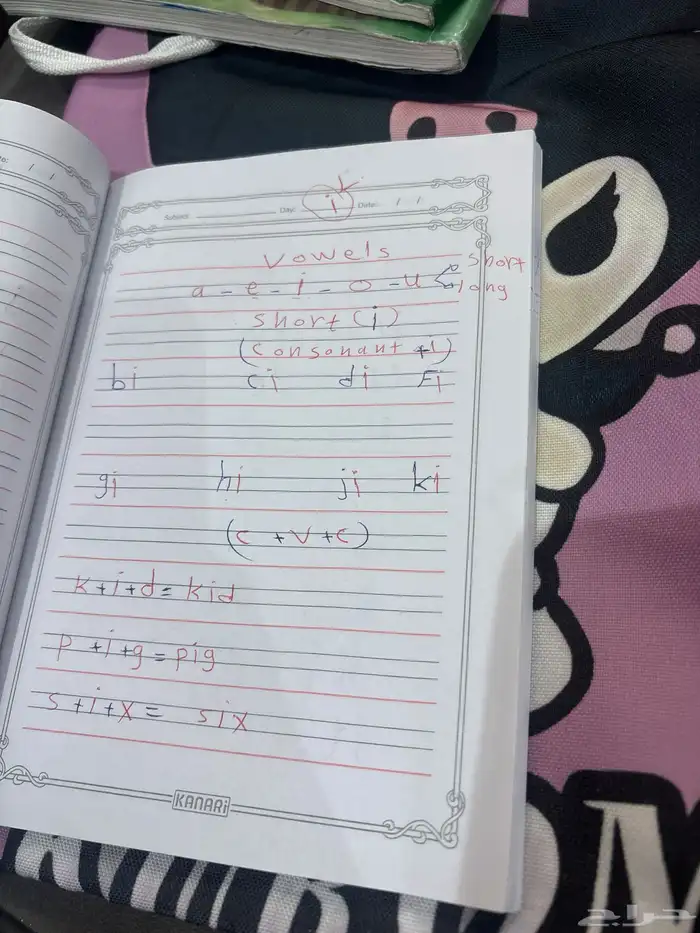 te: / /
Subject: Day: 1 Date: / /
Vowels
a - e - i - o - u short
long
short (i)
(consonant + i)
bi ci di Fi
gi hi ji ki
(c + v + c)
k + i + d = kid
p + i + g = pig
s + i + x = six
KANARi
حراج